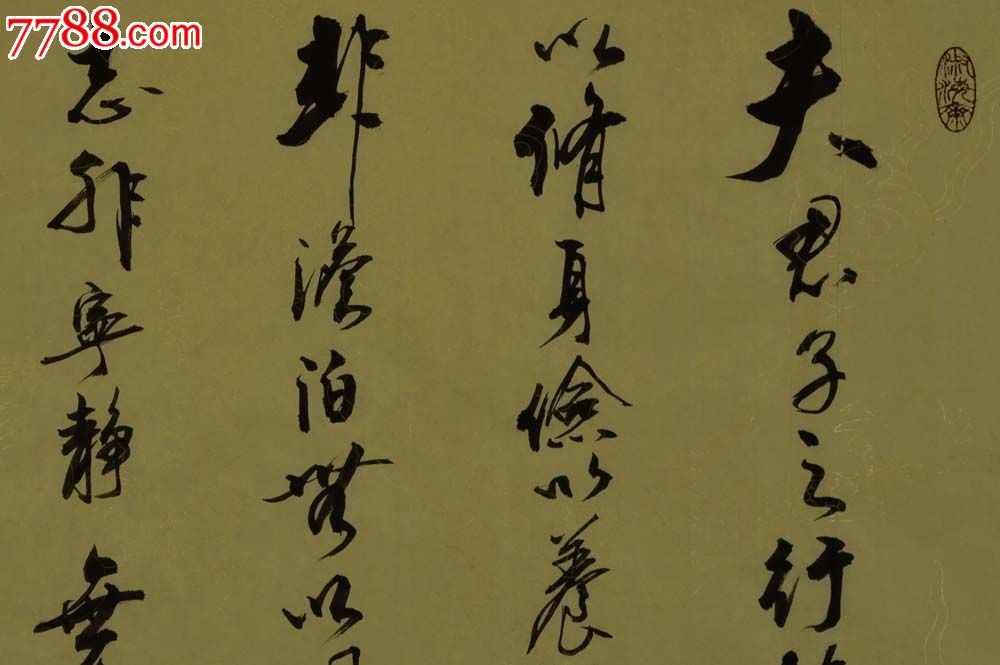 7788.com
夫君子之行
以脩身儉以養
非澹泊無以
志非寧靜無